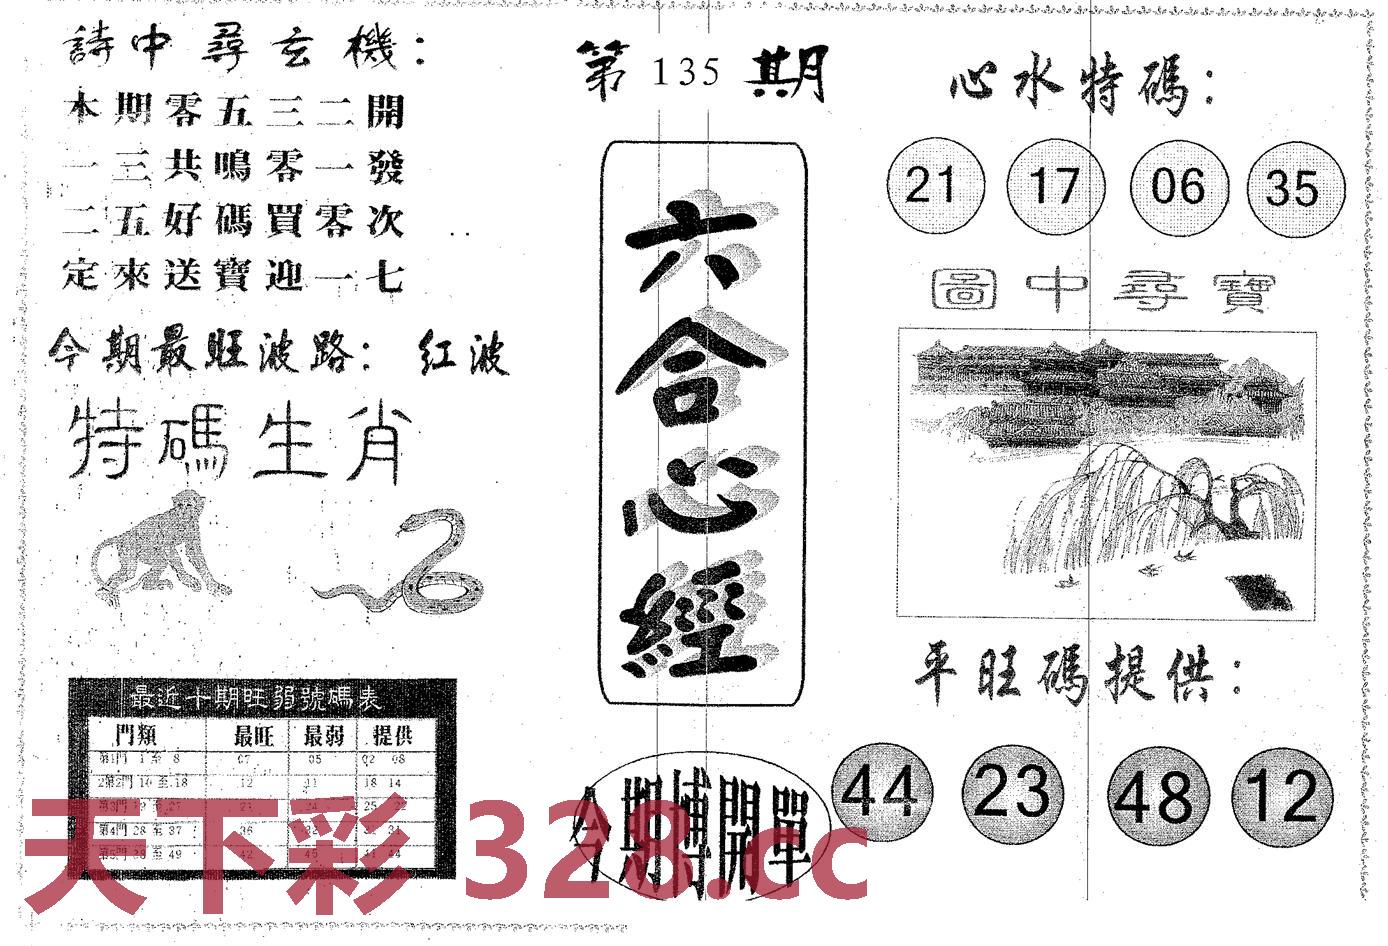 詩中尋玄機：
本期零五三二開
一三共鳴零一發
二五好碼買零次
定來送寶迎一七
今期最旺波路： 红波
特碼生肖
最近十期旺弱號碼表
門類 最旺 最弱 提供
第1門 1 至 8 07 05 02 08
第2門 10 至 18 12 11 18 14
第4門 28 至 37 36
49 42 44
第 135 期
六合心經
今期博開單
心水特碼：
21 17 06 35
圖中尋寶
平旺碼提供：
44 23 48 12
天下彩 328.cc